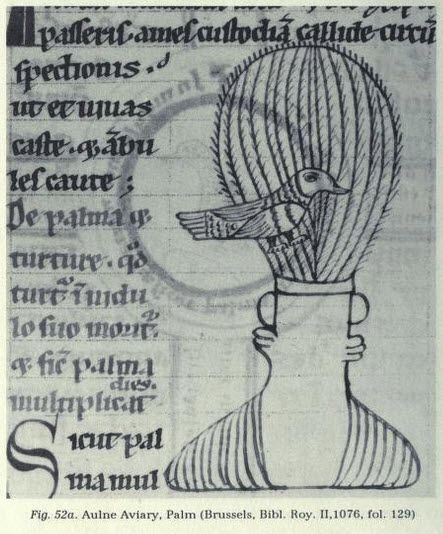 passeris. ames custodiā callide circū
spectionis.
ut et uiuas
caste. & ābu
les caute;
De palma &
turture. qđ
turt' ī nidu
lo suo morit'.
& sic̄ palma
dies.
multiplicat
Sicut pal
ma mul
Fig. 52a. Aulne Aviary, Palm (Brussels, Bibl. Roy. II,1076, fol. 129)